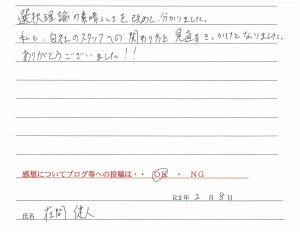 選択理論の素晴らしさを改めて分かりました。
私も、自社のスタッフへの関わり方を見直すきっかけとなりました。
ありがとうございました!!
感想についてブログ等への投稿は・・ OK ・ NG
R2年 2月 8日
氏名 在間 健人